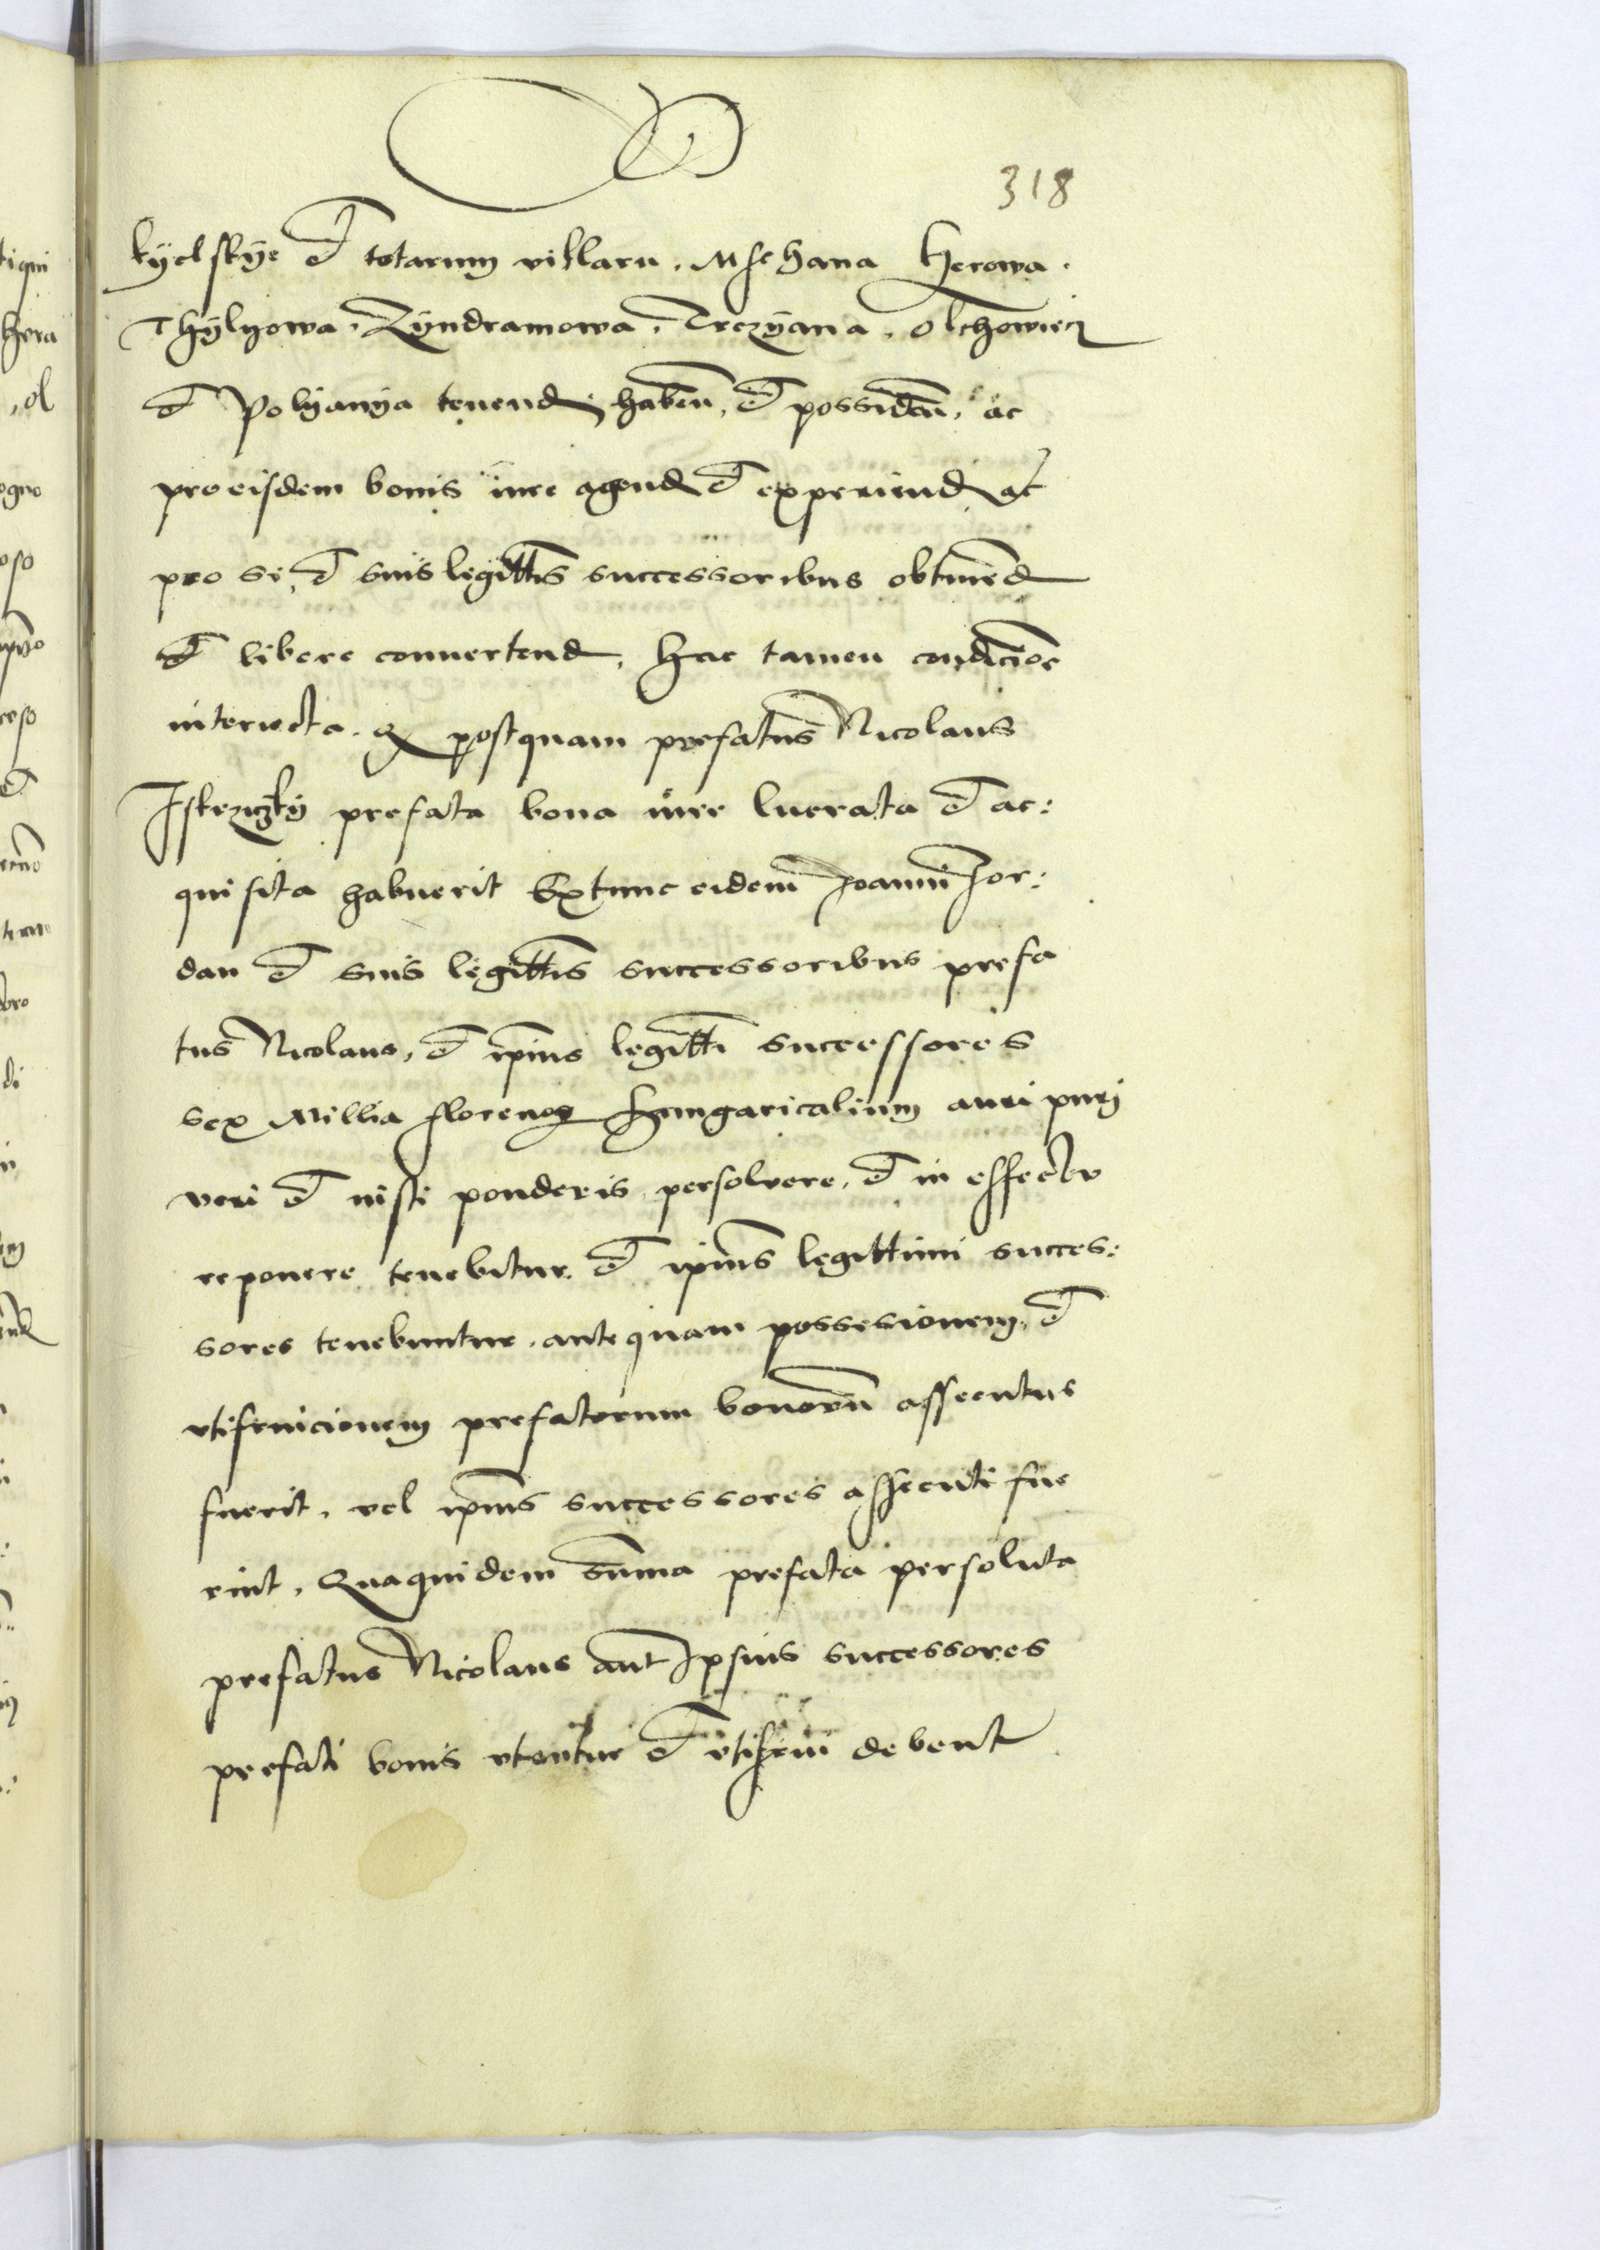 318
kÿelskÿe et totarum villaru. Mschana Herowa.
Thÿlyowa. Zÿndramowa. Trczÿana. Olchowiecz
et Polyanya tenend. haben. et possiden. ac
pro eisdem bonis iure agend et experiend ac
pro se, et suis legittīs successoribus obtinend
et libere conuertend, hac tamen condicōe
interiecta. q postquam prefatus Nicolaus
prefata bona iure lucrata et ac:
quisita habuerit Extunc eidem Joanni Jor:
dan et suis legittīs successoribus prefa
tus Nicolaus, et ip̄ius legittī successores
sex Millia florenoꝝ Hungaricalium auri puri
veri et iusti ponderis persolvere, et in effectu
reponere tenebitur. et ip̄ius legittimi succes:
sores tenebuntur. antequam possesionem, et
vtifruicionem prefatorum bonorū assecutus
fuerit, vel ip̄ius successores assecuti fue
rint, Quaquidem Summa prefata persoluta
prefatus Nicolaus aut Ipsius successores
prefati bonis vtentur et vtifrui debent